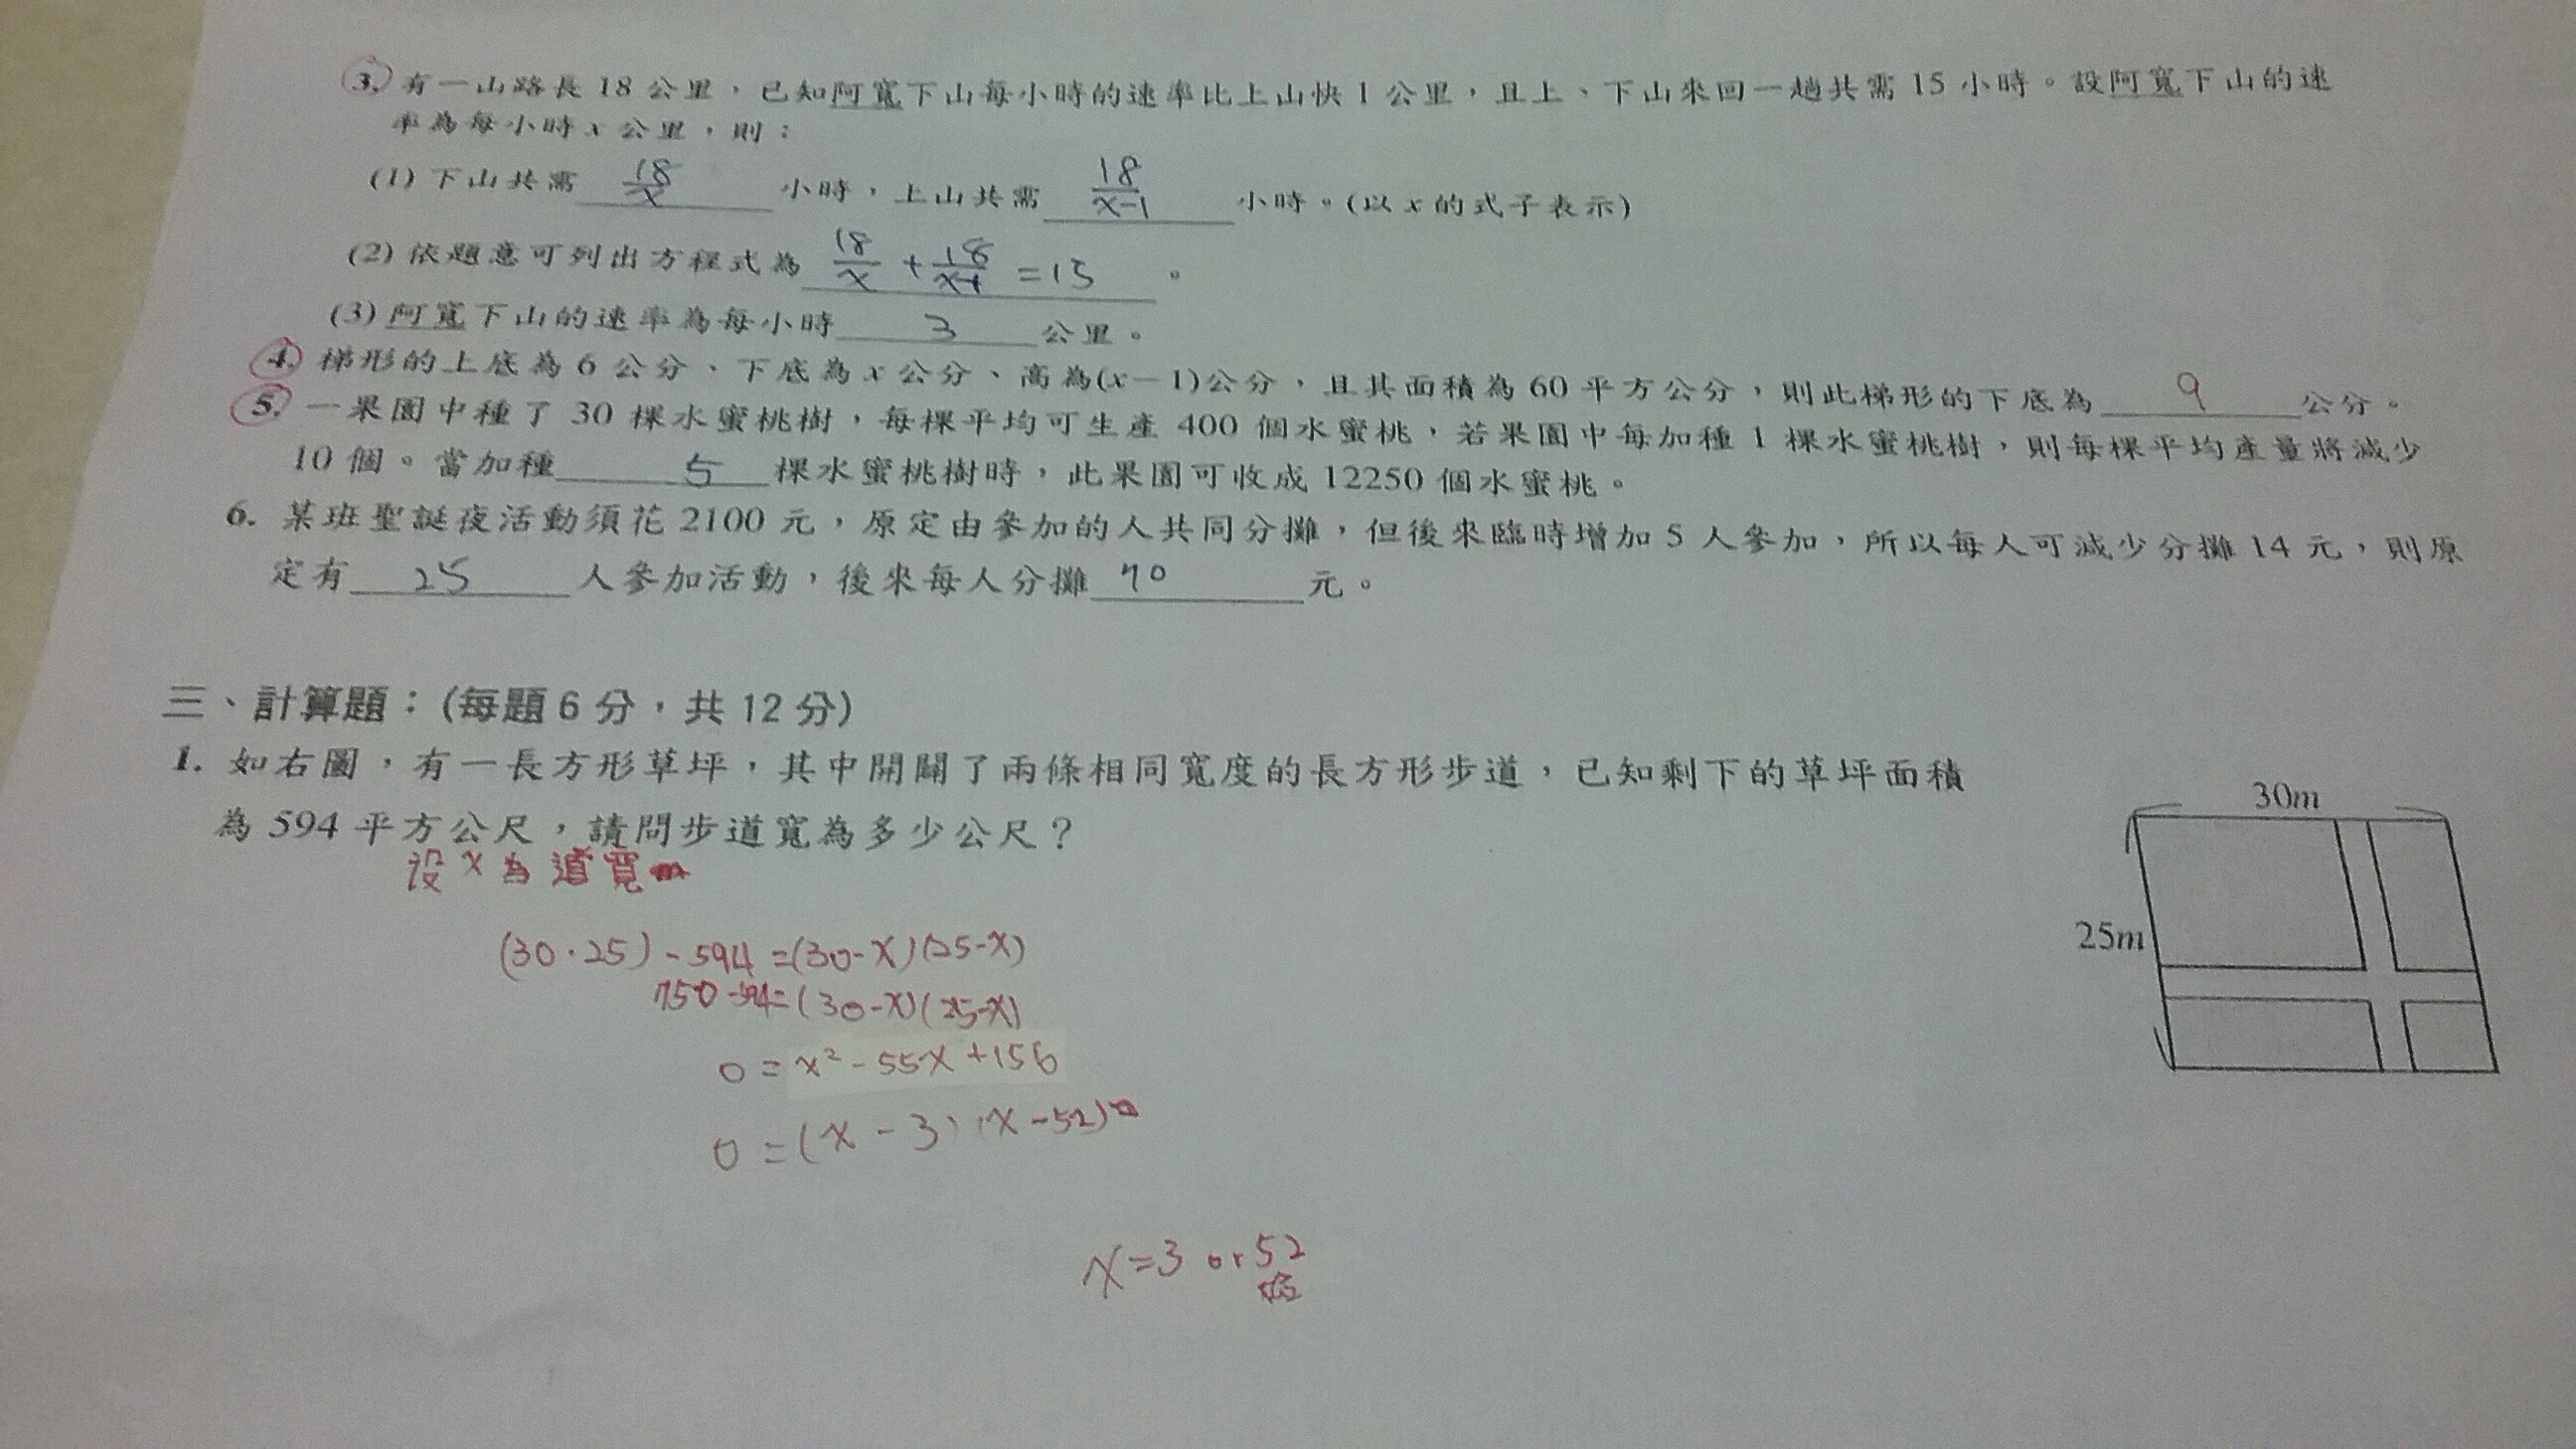 3. 有一山路長 18 公里，已知阿寬下山每小時的速率比上山快 1 公里，且上、下山來回一趟共需 15 小時。設阿寬下山的速
率為每小時 x 公里，則：
(1) 下山共需 18/x 小時，上山共需 18/x-1 小時。(以 x 的式子表示)
(2) 依題意可列出方程式為 18/x + 18/x-1 = 15 。
(3) 阿寬下山的速率為每小時 3 公里。
4. 梯形的上底為 6 公分、下底為 x 公分、高為(x－1)公分，且其面積為 60 平方公分，則此梯形的下底為 9 公分。
5. 一果園中種了 30 棵水蜜桃樹，每棵平均可生產 400 個水蜜桃，若果園中每加種 1 棵水蜜桃樹，則每棵平均產量將減少
10 個。當加種 5 棵水蜜桃樹時，此果園可收成 12250 個水蜜桃。
6. 某班聖誕夜活動須花 2100 元，原定由參加的人共同分攤，但後來臨時增加 5 人參加，所以每人可減少分攤 14 元，則原
定有 25 人參加活動，後來每人分攤 70 元。
三、計算題：(每題 6 分，共 12 分)
1. 如右圖，有一長方形草坪，其中開闢了兩條相同寬度的長方形步道，已知剩下的草坪面積
為 594 平方公尺，請問步道寬為多少公尺？
30m
25m
設 x 為道寬
(30·25) - 594 = (30-x)(25-x)
750-594=(30-x)(25-x)
0 = x² - 55x + 156
0 = (x - 3)(x - 52)
x = 3 or 52